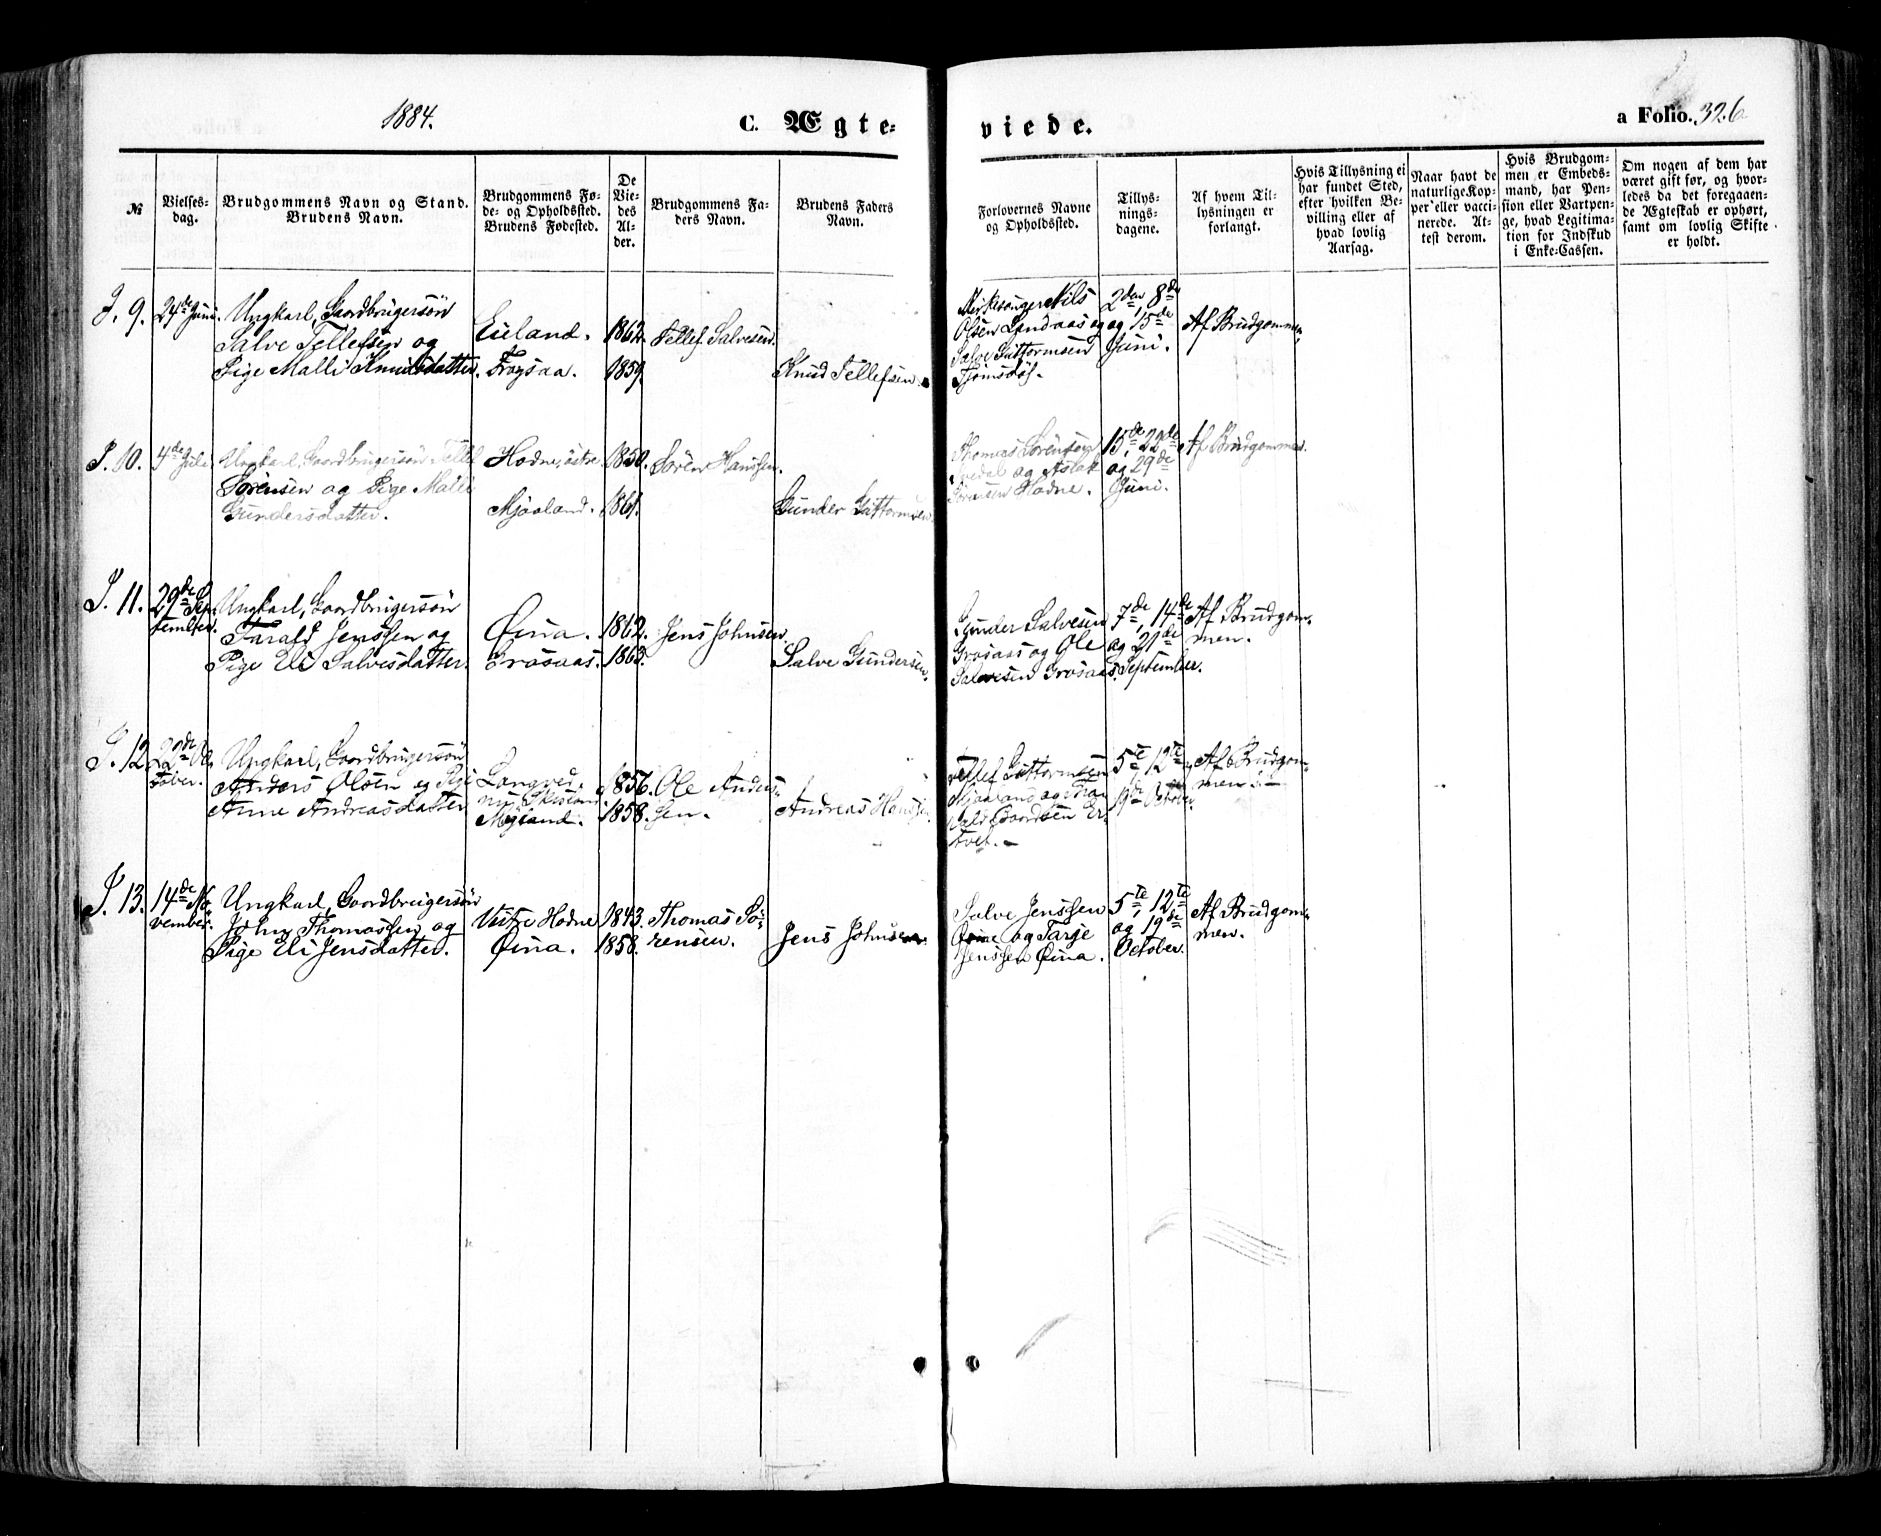 1884.
C. Ægte-
viede.
a Folio. 326
№
Vielses-
dag.
Brudgommens Navn og Stand.
Brudens Navn.
Brudgommens Fø-
de- og Opholdssted.
Brudens Fødested.
De
Vie-
des
Al-
der.
Brudgommens Fa-
ders Navn.
Brudens Faders
Navn.
Forlovernes Navne
og Opholdssted.
Tillys-
nings-
dagene.
Af hvem Til-
lysningen er
forlangt.
Hvis Tillysning ei
har fundet Sted,
efter hvilken Be-
villing eller af
hvad lovlig
Aarsag.
Naar havt de
naturlige Kop-
per eller vacci-
nerede. At-
test derom.
Hvis Brudgom-
men er Embeds-
mand, har Pen-
sion eller Vartpen-
ge, hvad Legitima-
tion for Indskud
i Enke-Cassen.
Om nogen af dem har
været gift før, og hvor-
ledes da det foregaaen-
de Ægteskab er ophørt,
samt om lovlig Skifte
er holdt.
9.
24de Juni.
Ungkarl, Gaardbrugersøn
Salve Tellefsen og
Pige Malli Knudsdatter.
Eieland.
Frøysaa.
1862.
1859.
Tellef Salvesen.
Knud Tellefsen.
Kirkesanger Nils
Olsen Landaas og
Salve Guttormsen
Tjomsdøl.
2den, 8de
og 15de
Juni.
Af Brudgommen.
10.
4de Juli
Ungkarl, Gaardbrugersøn Tellef
Sørensen og Pige Malli
Gundersdatter.
Hodne, østre
Mjaaland.
1850.
1861.
Søren Hanssen.
Gunder Guttormsen.
Thomas Sørensen
og Aslak
Sørensen Hodne.
15de, 22de
og 29de
Juni.
Af Brudgommen.
11.
29de Sep-
tember.
Ungkarl, Gaardbrugersøn
Tarald Jenssen og
Pige Eli Salvesdatter.
Øina.
Grosaas.
1862.
1863.
Jens Johnsen.
Salve Gundersen.
Gunder Salvesen
Grosaas og Ole
Salvesen Grosaas.
7de, 14de
og 21de
September.
Af Brudgom-
men.
12.
22de Oc-
tober.
Ungkarl, Gaardbrugersøn
Anders Olsen og Pige
Anne Andreasdatter
Langved,
Mygland.
1856.
1858.
Ole Anders-
sen.
Andreas Hanssen.
Tellef Guttormsen
Mjaaland og Ha-
rald Gaardsen Er-
tvet.
5te, 12te
19de October.
Af Brudgom-
men.
13.
14de No-
vember.
Ungkarl, Gaardbrugersøn
John Thomassen og
Pige Eli Jensdatter.
Vestre Hodne
Øina.
1843.
1858.
Thomas Sø-
rensen.
Jens Johnsen.
Salve Jenssen
Øine og Tarje
Jenssen Øina.
5te, 12te
og 19de
October.
Af Brudgom-
men.